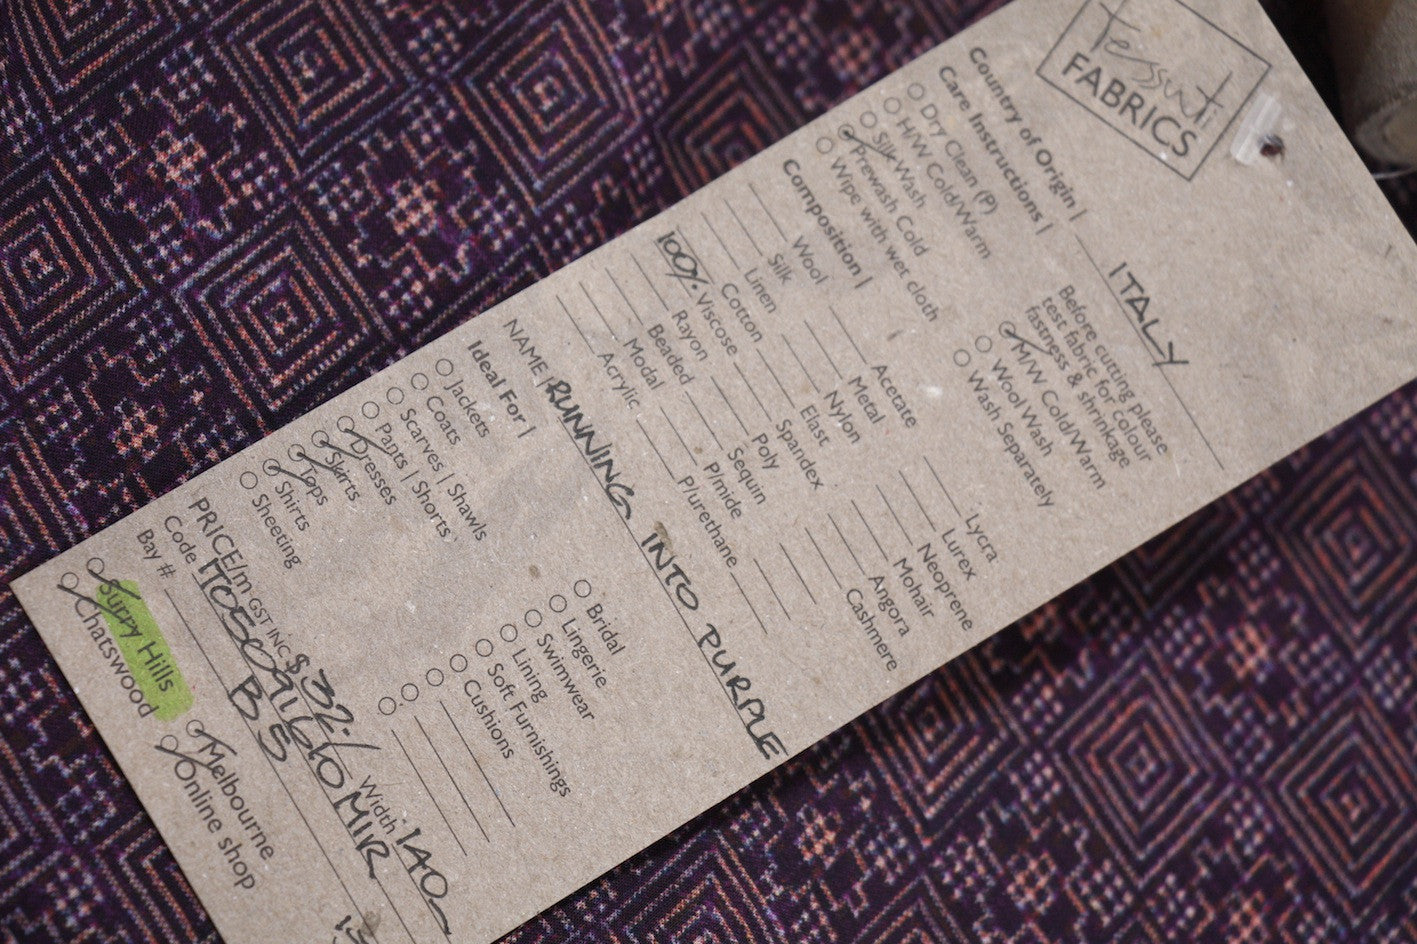 Tessuti
FABRICS
Country of Origin | ITALY
Care Instructions |
Dry Clean (P)
H/W Cold/Warm
Silk Wash
Prewash Cold
Wipe with wet cloth
Before cutting please
test fabric for colour
fastness & shrinkage
M/W Cold/Warm
Wool Wash
Wash Separately
Composition |
Wool
Silk
Linen
Cotton
100% Viscose
Rayon
Beaded
Modal
Acrylic
Acetate
Metal
Nylon
Elast
Spandex
Poly
Sequin
P/mide
P/urethane
Lycra
Lurex
Neoprene
Mohair
Angora
Cashmere
NAME | RUNNING INTO PURPLE
Ideal For |
Jackets
Coats
Scarves | Shawls
Pants | Shorts
Dresses
Skirts
Tops
Shirts
Sheeting
Bridal
Lingerie
Swimwear
Lining
Soft Furnishings
Cushions
PRICE/m GST INC $32.- Width 140
Code
Bay # B5
Surry Hills
Chatswood
Melbourne
Online shop